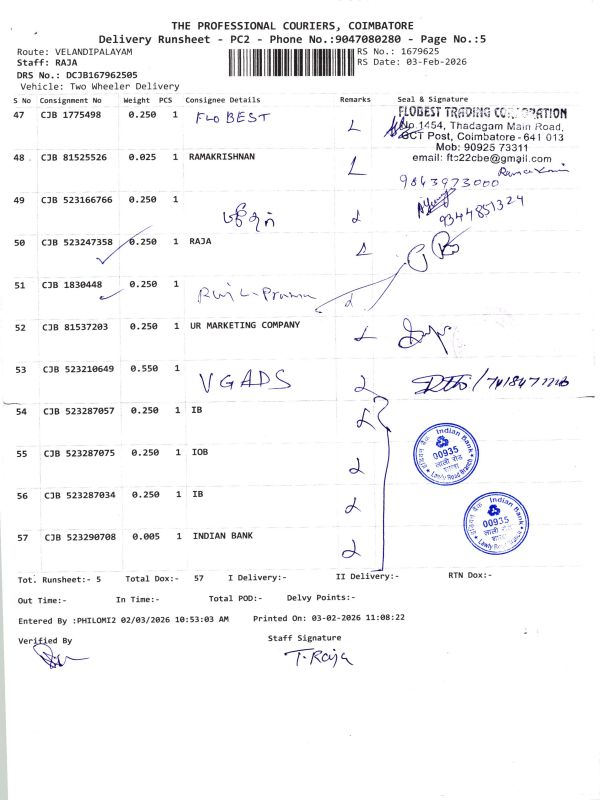 THE PROFESSIONAL COURIERS, COIMBATORE
Delivery Runsheet - PC2 - Phone No.:9047080280 - Page No.:5
Route: VELANDIPALAYAM RS No.: 1679625
Staff: RAJA RS Date: 03-Feb-2026
DRS No.: DCJB167962505
Vehicle: Two Wheeler Delivery
S No Consignment No Weight PCS Consignee Details Remarks Seal & Signature
47 CJB 1775498 0.250 1 FLOBEST L
FLOBEST TRADING CORPORATION
No.1454, Thadagam Main Road,
GCT Post, Coimbatore - 641 013
Mob: 90925 73311
email: ft22cbe@gmail.com
48 CJB 81525526 0.025 1 RAMAKRISHNAN L
9843973000
49 CJB 523166766 0.250 1 L 9344851324
50 CJB 523247358 0.250 1 RAJA L
51 CJB 1830448 0.250 1 L
52 CJB 81537203 0.250 1 UR MARKETING COMPANY L
53 CJB 523210649 0.550 1 VGADS L
54 CJB 523287057 0.250 1 IB L
55 CJB 523287075 0.250 1 IOB L
Indian Bank
00935
लाली रोड
शाखा
Lawly Road Branch
56 CJB 523287034 0.250 1 IB L
Indian Bank
00935
लाली रोड
शाखा
Lawly Road Branch
57 CJB 523290708 0.005 1 INDIAN BANK L
Tot. Runsheet:- 5 Total Dox:- 57 I Delivery:- II Delivery:- RTN Dox:-
Out Time:- In Time:- Total POD:- Delvy Points:-
Entered By :PHILOMI2 02/03/2026 10:53:03 AM Printed On: 03-02-2026 11:08:22
Verified By Staff Signature
T. Raja